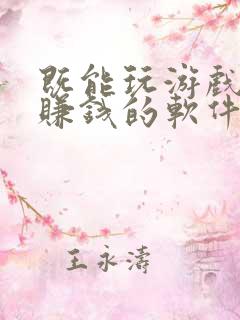 既能玩游戲
賺錢的軟件
王永濤